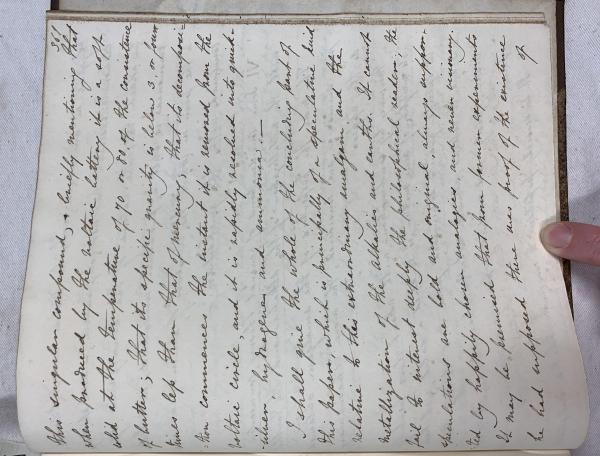 361
this singular compound, & briefly mentioning that
when produced by the voltaic battery it is a soft
solid at the temperature of 70 or 80 of the consistence
of butter; that its specific gravity is below 3 or four
times less than that of mercury; that its decomposi-
-tion commences the instant it is removed from the
voltaic circle, and it is rapidly resolved into quick-
-silver, hydrogen and ammonia. —
I shall give the whole of the concluding part of
this paper, which is principally of a speculative kind
relative to this extraordinary amalgam and the
metalization of the alkalies and earths. It cannot
fail to interest deeply the philosophical reader. The
speculations are bold and original, always suppor-
-ted by happily chosen analogies and never visionary.
It may be premised that from former experiments
he had supposed there was proof of the existence
of